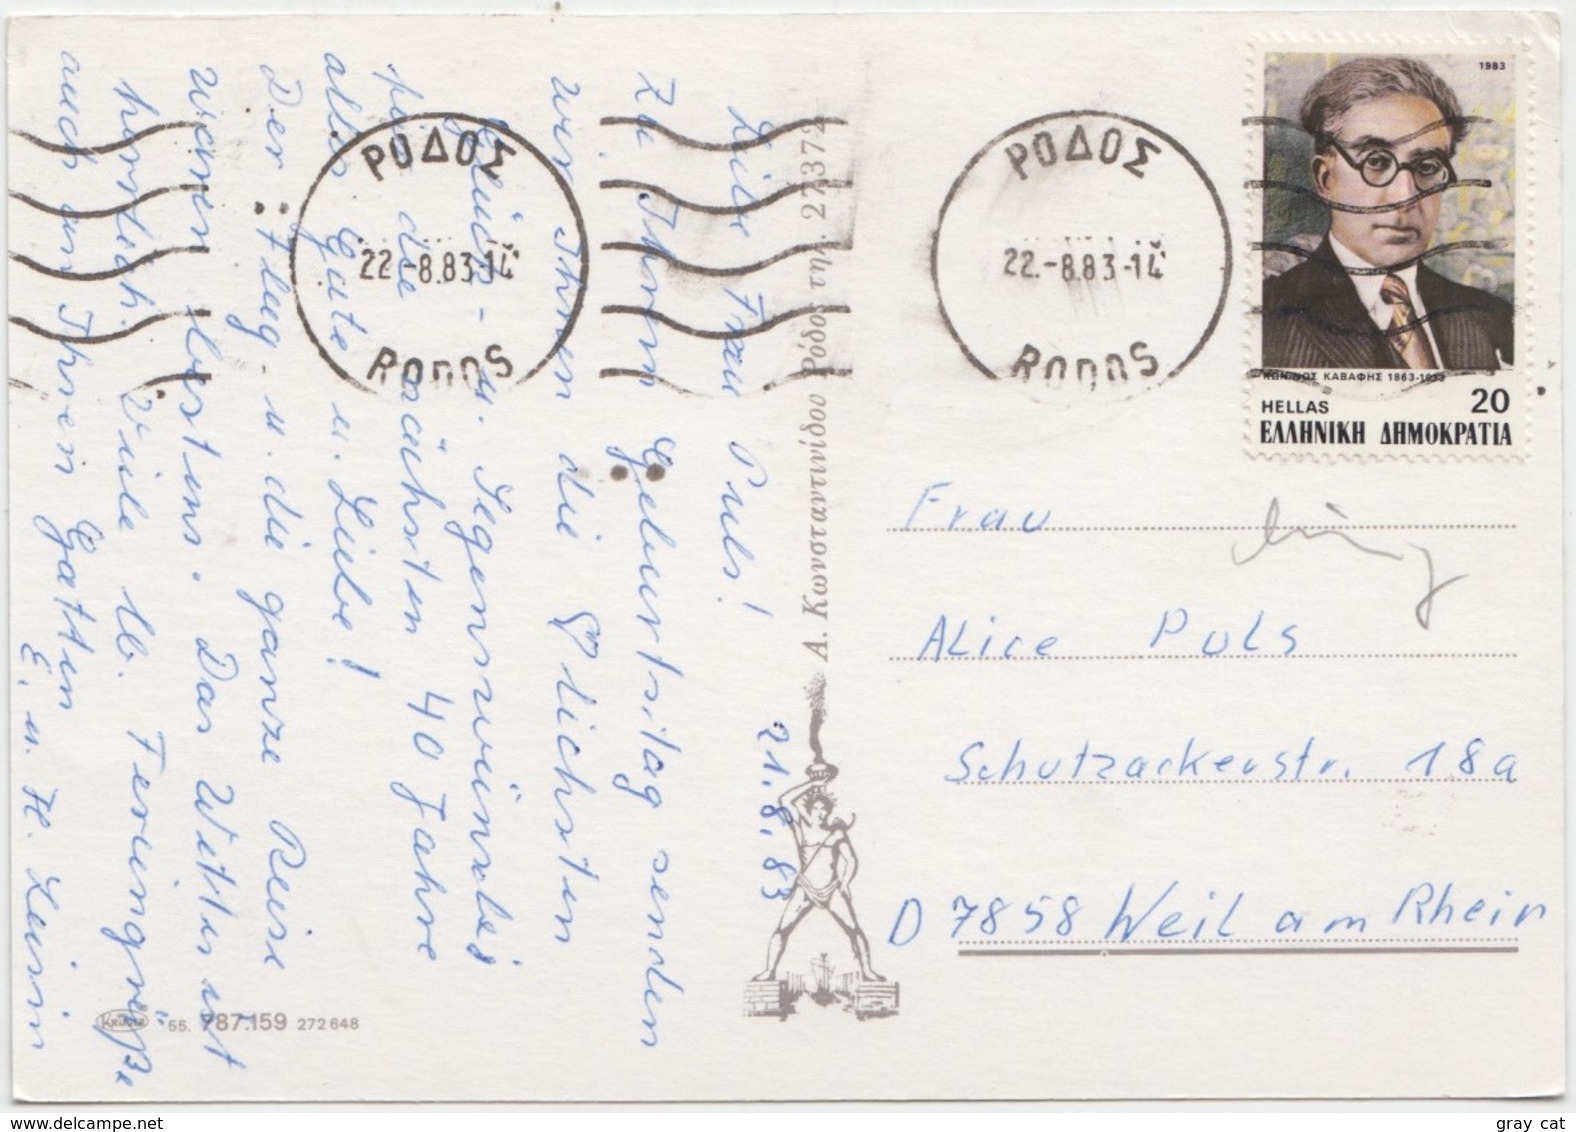 21.8.83
Liebe Frau Puls!
Zu Ihrem Geburtstag senden
wir Ihnen die herzlichsten
Glück- u. Segenswünsche
für die nächsten 40 Jahre
alles Gute u. Liebe!
Der Flug u. die ganze Reise
waren bestens. Das Wetter ist
herrlich. Viele lb. Feriengrüße
auch an Ihren Gatten
E. u. H.
Α. Κωνσταντινίδου Ρόδος τηλ. 22372
KRÜGER 55. 787.159 272 648
ΡΟΔΟΣ
22.-8.83-14
RODOS
ΡΟΔΟΣ
22.-8.83-14
RODOS
1983
ΚΩΝ/ΝΟΣ ΚΑΒΑΦΗΣ 1863-1933
HELLAS 20
ΕΛΛΗΝΙΚΗ ΔΗΜΟΚΡΑΤΙΑ
Frau
Alice Puls
Schutzackerstr. 18a
D 7858 Weil am Rhein
www.delcampe.net
gray cat